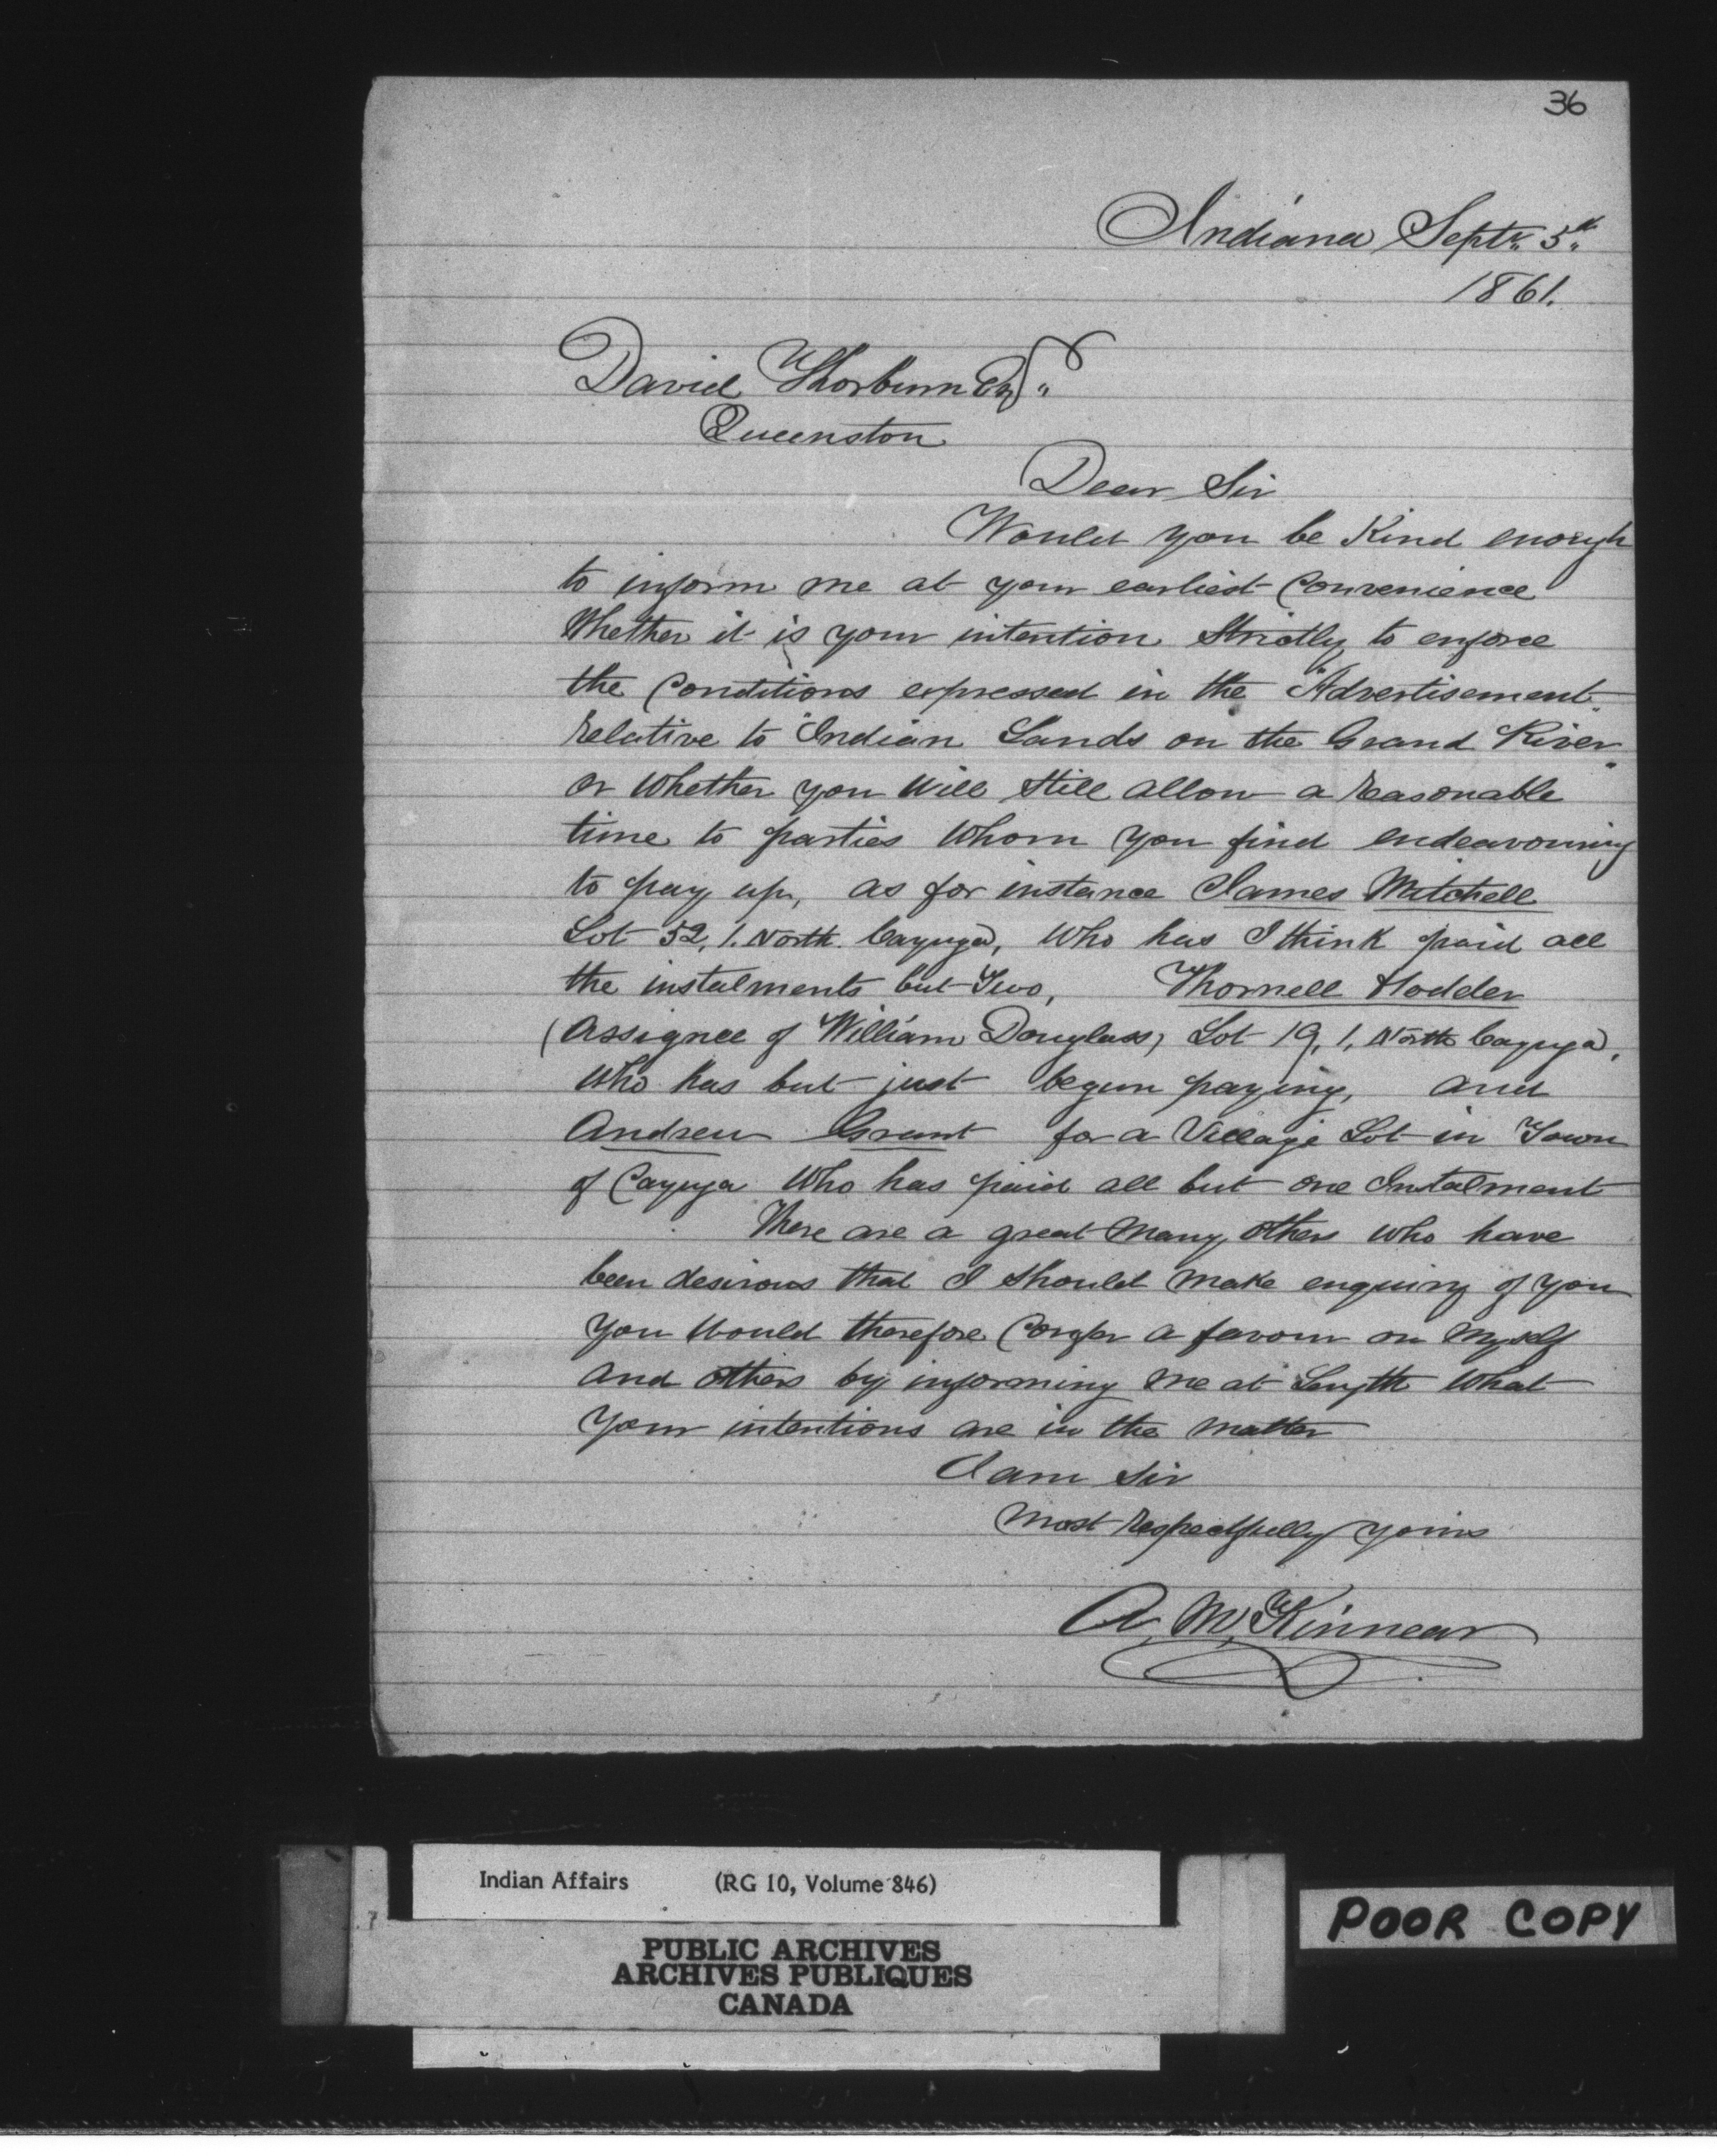 36
Indiana Septr. 5th
1861.
David Thorburn Esqr.
Queenston
Dear Sir
Would you be Kind enough
to inform me at your earliest Convenience
Whether it is your intention Strictly to enforce
the Conditions expressed in the "Advertisement
Relative to Indian Lands on the Grand River"
or Whether you Will Still allow a Reasonable
time to parties Whom you find endeavouring
to pay up, as for instance James Mitchell
Lot 52, 1. North Cayuga, Who has I think paid all
the instalments but Two, Thornell Hodder
(Assignee of William Douglass, Lot 19, 1, North Cayuga,
Who has but just begun paying, and
Andrew Grant for a Village Lot in Town
of Cayuga Who has paid all but one Instalment
There are a great Many others Who have
been desirous that I Should Make enquiry of you
You Would therefore Confer a favour on Myself
and others by informing Me at Length What
Your intentions are in the Matter
I am Sir
Most Respectfully yours
A. McKinnear
Indian Affairs (RG 10, Volume 846)
PUBLIC ARCHIVES
ARCHIVES PUBLIQUES
CANADA
POOR COPY